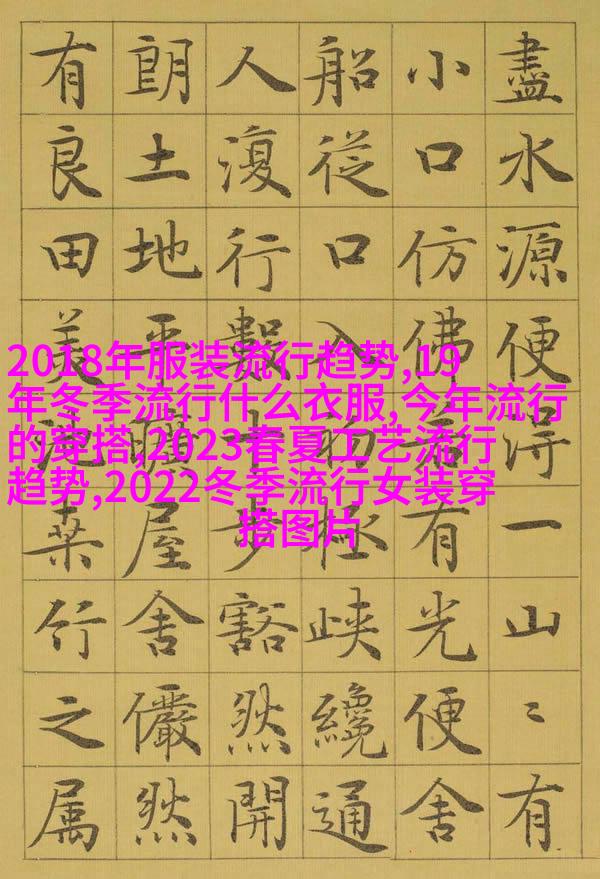 盡水源便得一山〻有
小口仿佛若有光便舍
船從口入初極峽纔通
人復行數十步豁然開
朗土地平曠屋舍儼然
有良田美池桑竹之属
2018年服装流行趋势,19
年冬季流行什么衣服,今年流行
的穿搭,2023春夏工艺流行
趋势,2022冬季流行女装穿
搭图片